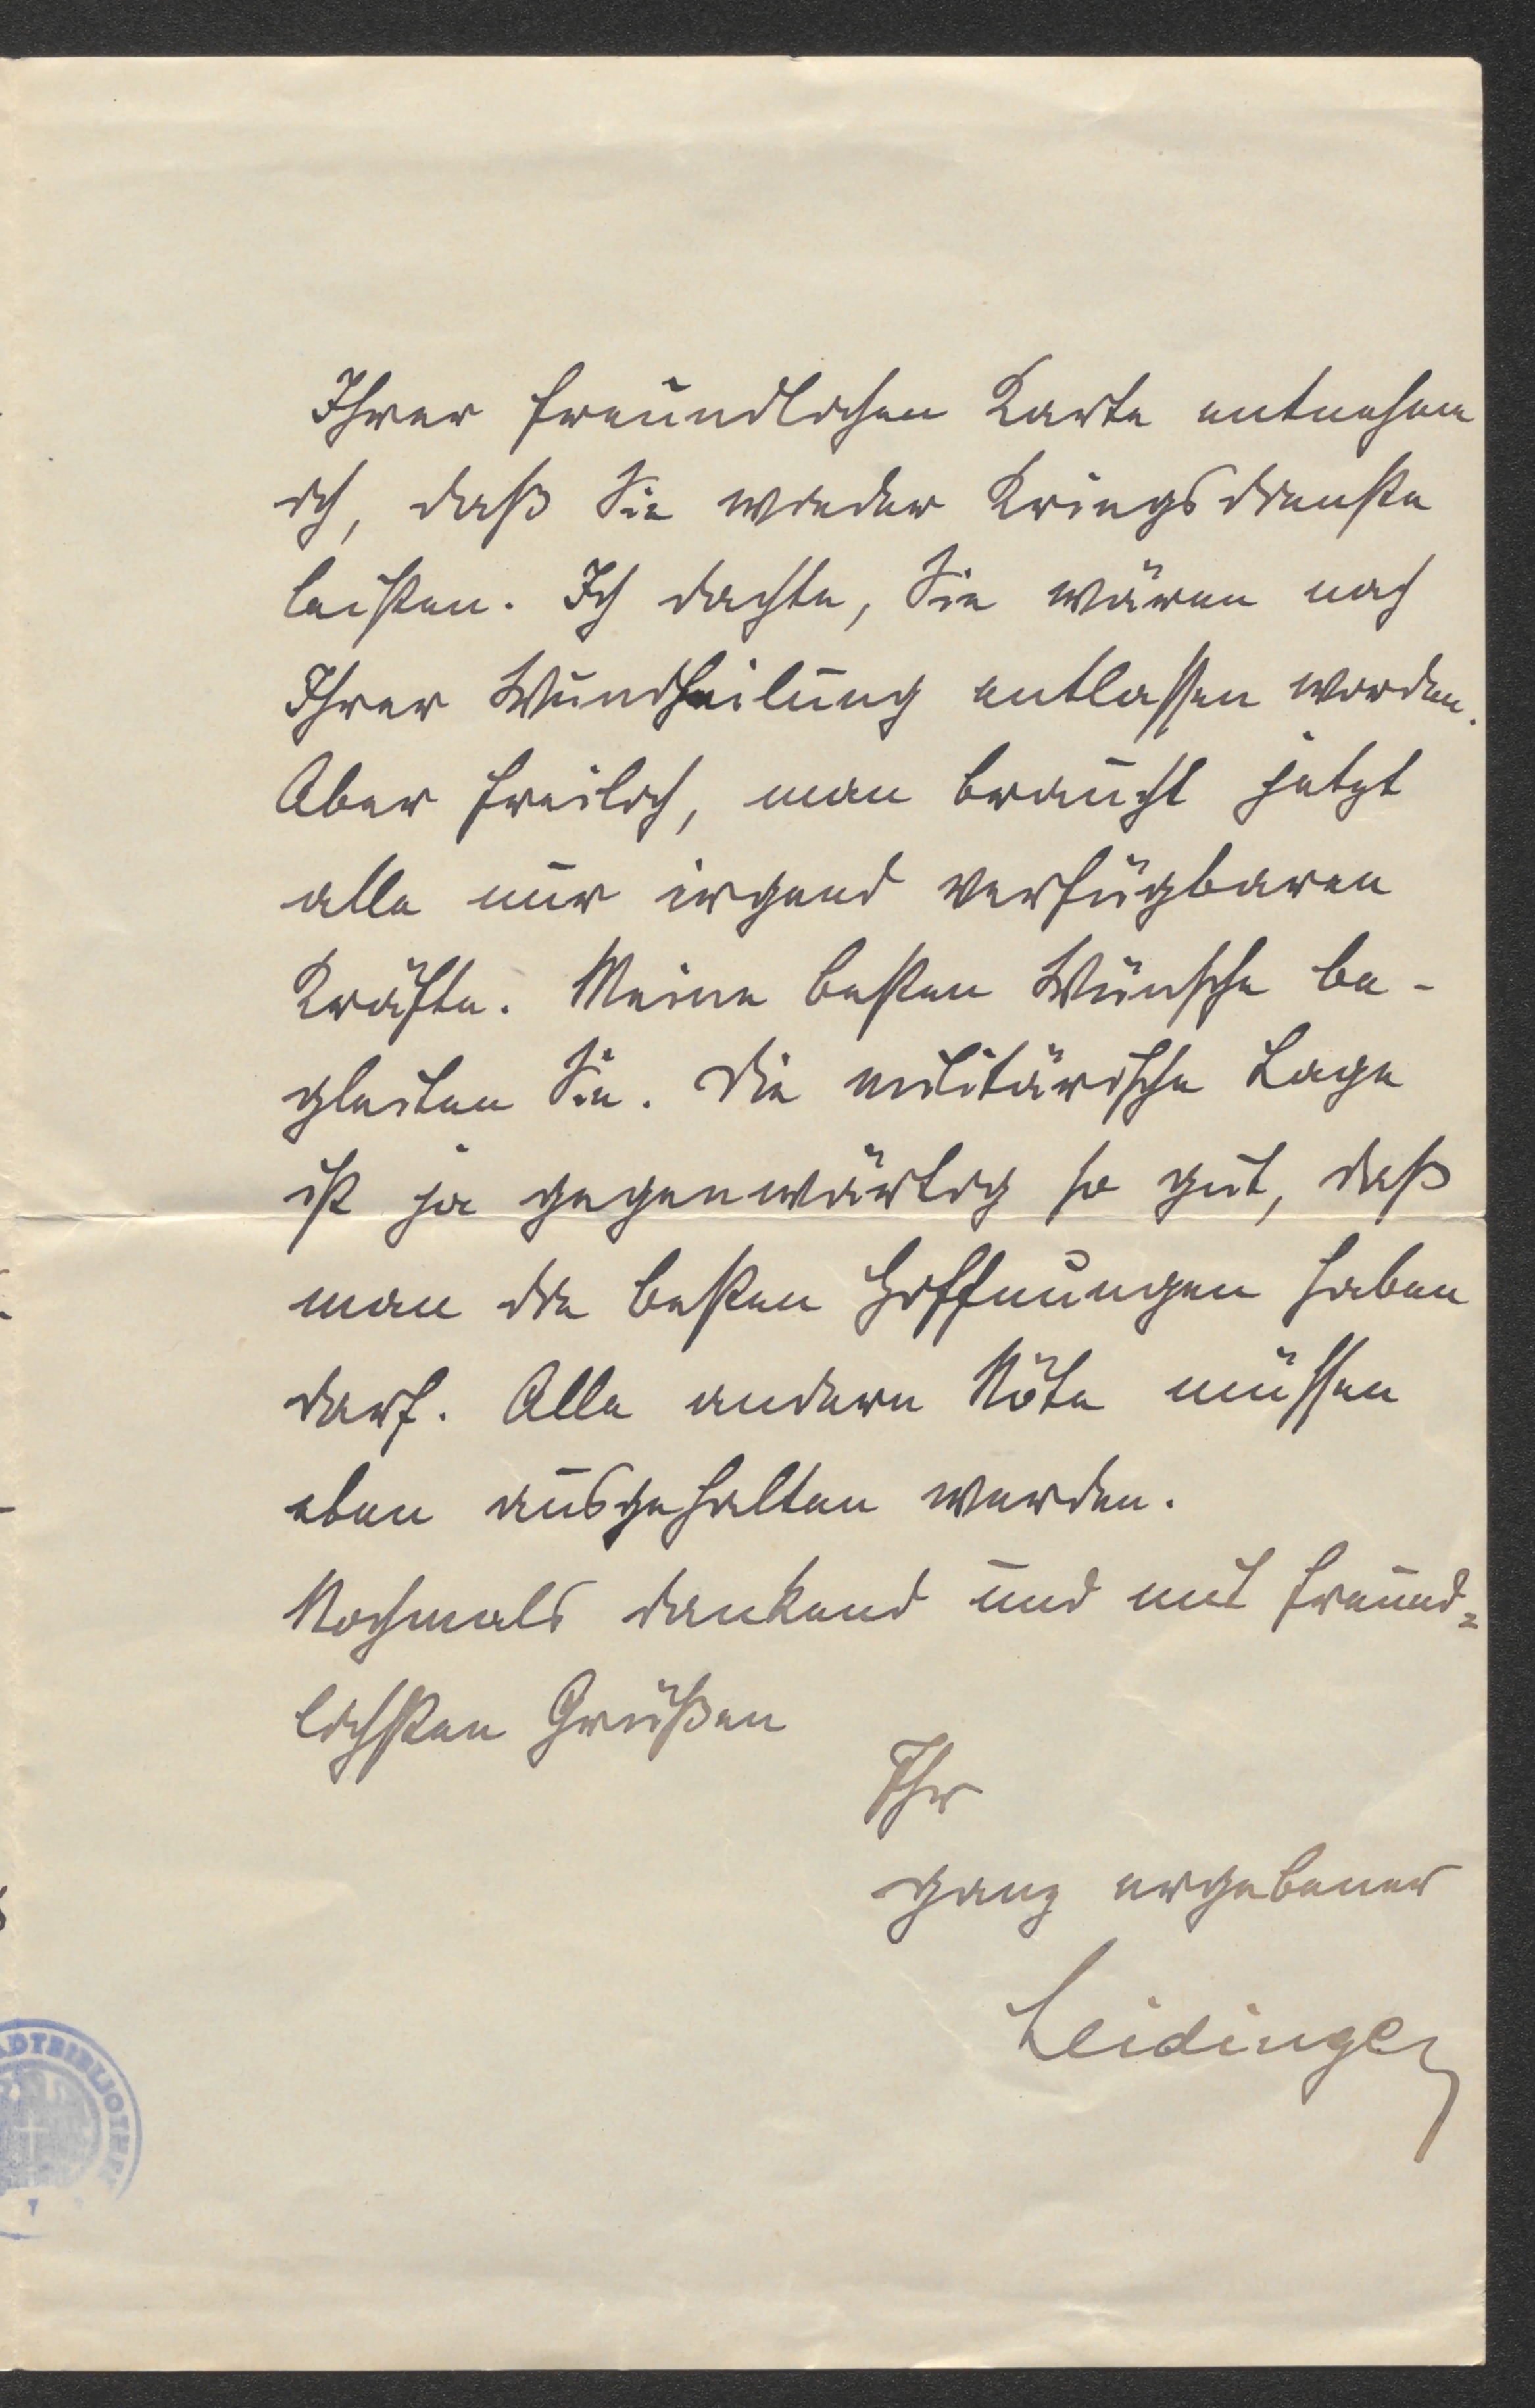 Ihrer freundlichen Karte entnehme
ich, daß Sie wieder Kriegsdienste
leisten. Ich dachte, Sie wären nach
Ihrer Wundheilung entlassen worden.
Aber freilich, man braucht jetzt
alle nur irgend verfügbaren
Kräfte. Meine besten Wünsche be-
gleiten Sie. Die militärische Lage
ist ja gegenwärtig so gut, daß
man die besten Hoffnungen haben
darf. Alle andern Nöte müssen
eben ausgehalten werden.
Nochmals dankend und mit freund=
lichsten Grüßen
Ihr
ganz ergebener
Leidinger
ADTBIBLIOTHEK